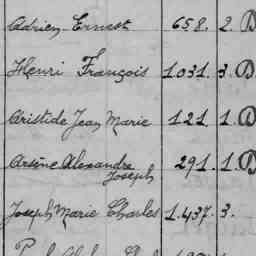 Adrien Ernest 658. 2. D
Henri François 1031. 3. D
Aristide Jean Marie 121. 1. D
Arsène Alexandre 291. 1. D
Joseph
Joseph Marie Charles 1.437. 3.